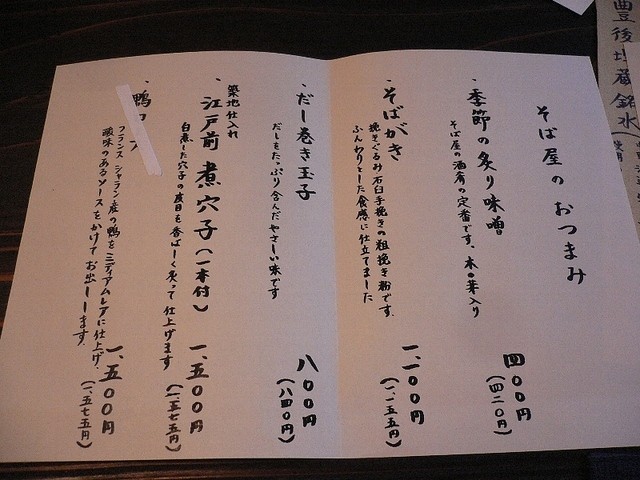 豊後 蔵銘水
そば屋のおつまみ
・季節の炙り味噌
そば屋の酒肴の定番です。木の芽入り
四〇〇円
(四二〇円)
・そばがき
挽きぐるみ石臼手挽きの粗挽き粉です。
ふんわりとした食感に仕立てました
一、一〇〇円
(一、一五五円)
・だし巻き玉子
だしをたっぷり含んだやさしい味です
八〇〇円
(八四〇円)
築地仕入れ
・江戸前 煮穴子(一本付)
白煮した穴子の皮目を香ばしく炙って仕上げます
一、五〇〇円
(一、五七五円)
・鴨ロース
フランス シャラン産の鴨をミディアムレアに仕上げ、
酸味のあるソースをかけてお出しします。
一、五〇〇円
(一、五七五円)